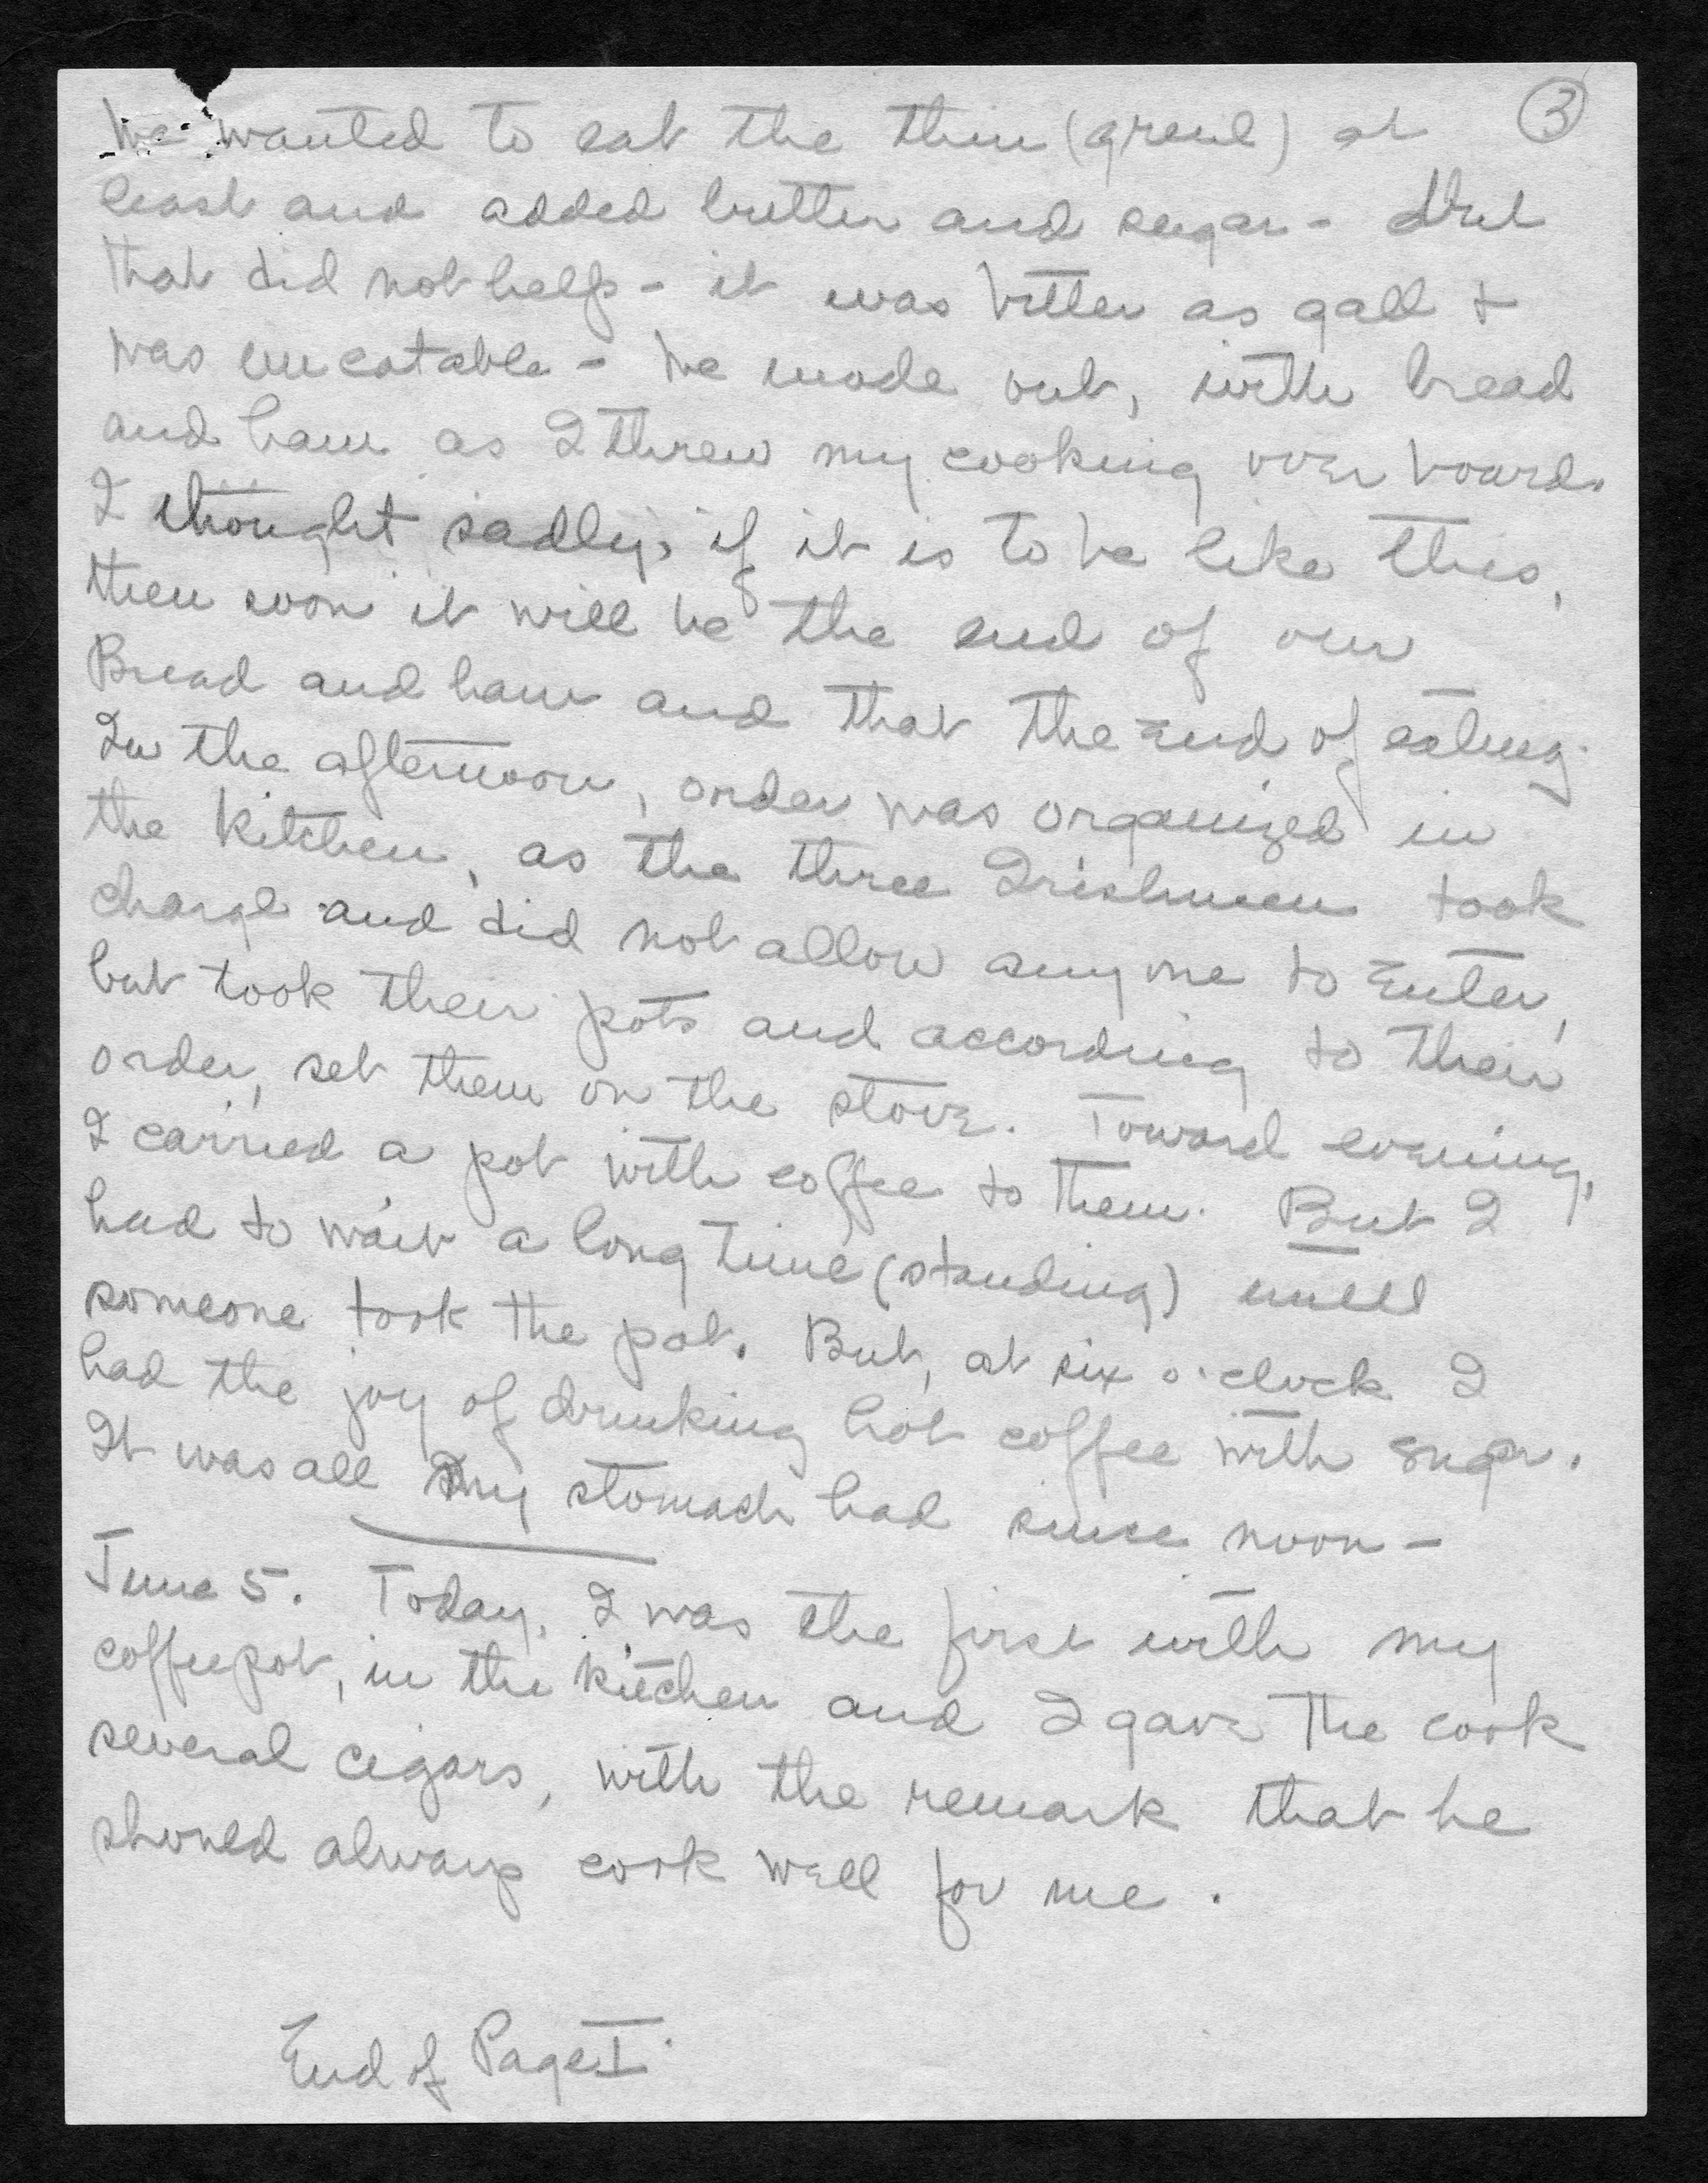 We wanted to eat the thin (greul) at
③
least and added butter and sugar - But
that did not help - it was bitter as gall +
was uneatable - We made out, with bread
and ham as I threw my cooking over board.
I thought sadly, if it is to be like this,
then soon it will be the end of our
Bread and ham and that the End of eating.
In the afternoon, order was organized in
the kitchen, as the three Irishmen took
charge and did not allow anyone to Enter,
but took their pots and according to their
order, set them on the stove. Toward evening,
I carried a pot with coffee to them. But I
had to wait a long time (standing) until
someone took the pot. But, at six o'clock I
had the joy of drinking hot coffee with sugar.
It was all my stomach had since noon -
June 5. Today, I was the first with my
coffeepot, in the kitchen and I gave the cook
several cigars, with the remark that he
should always cook well for me.
End of Page I.